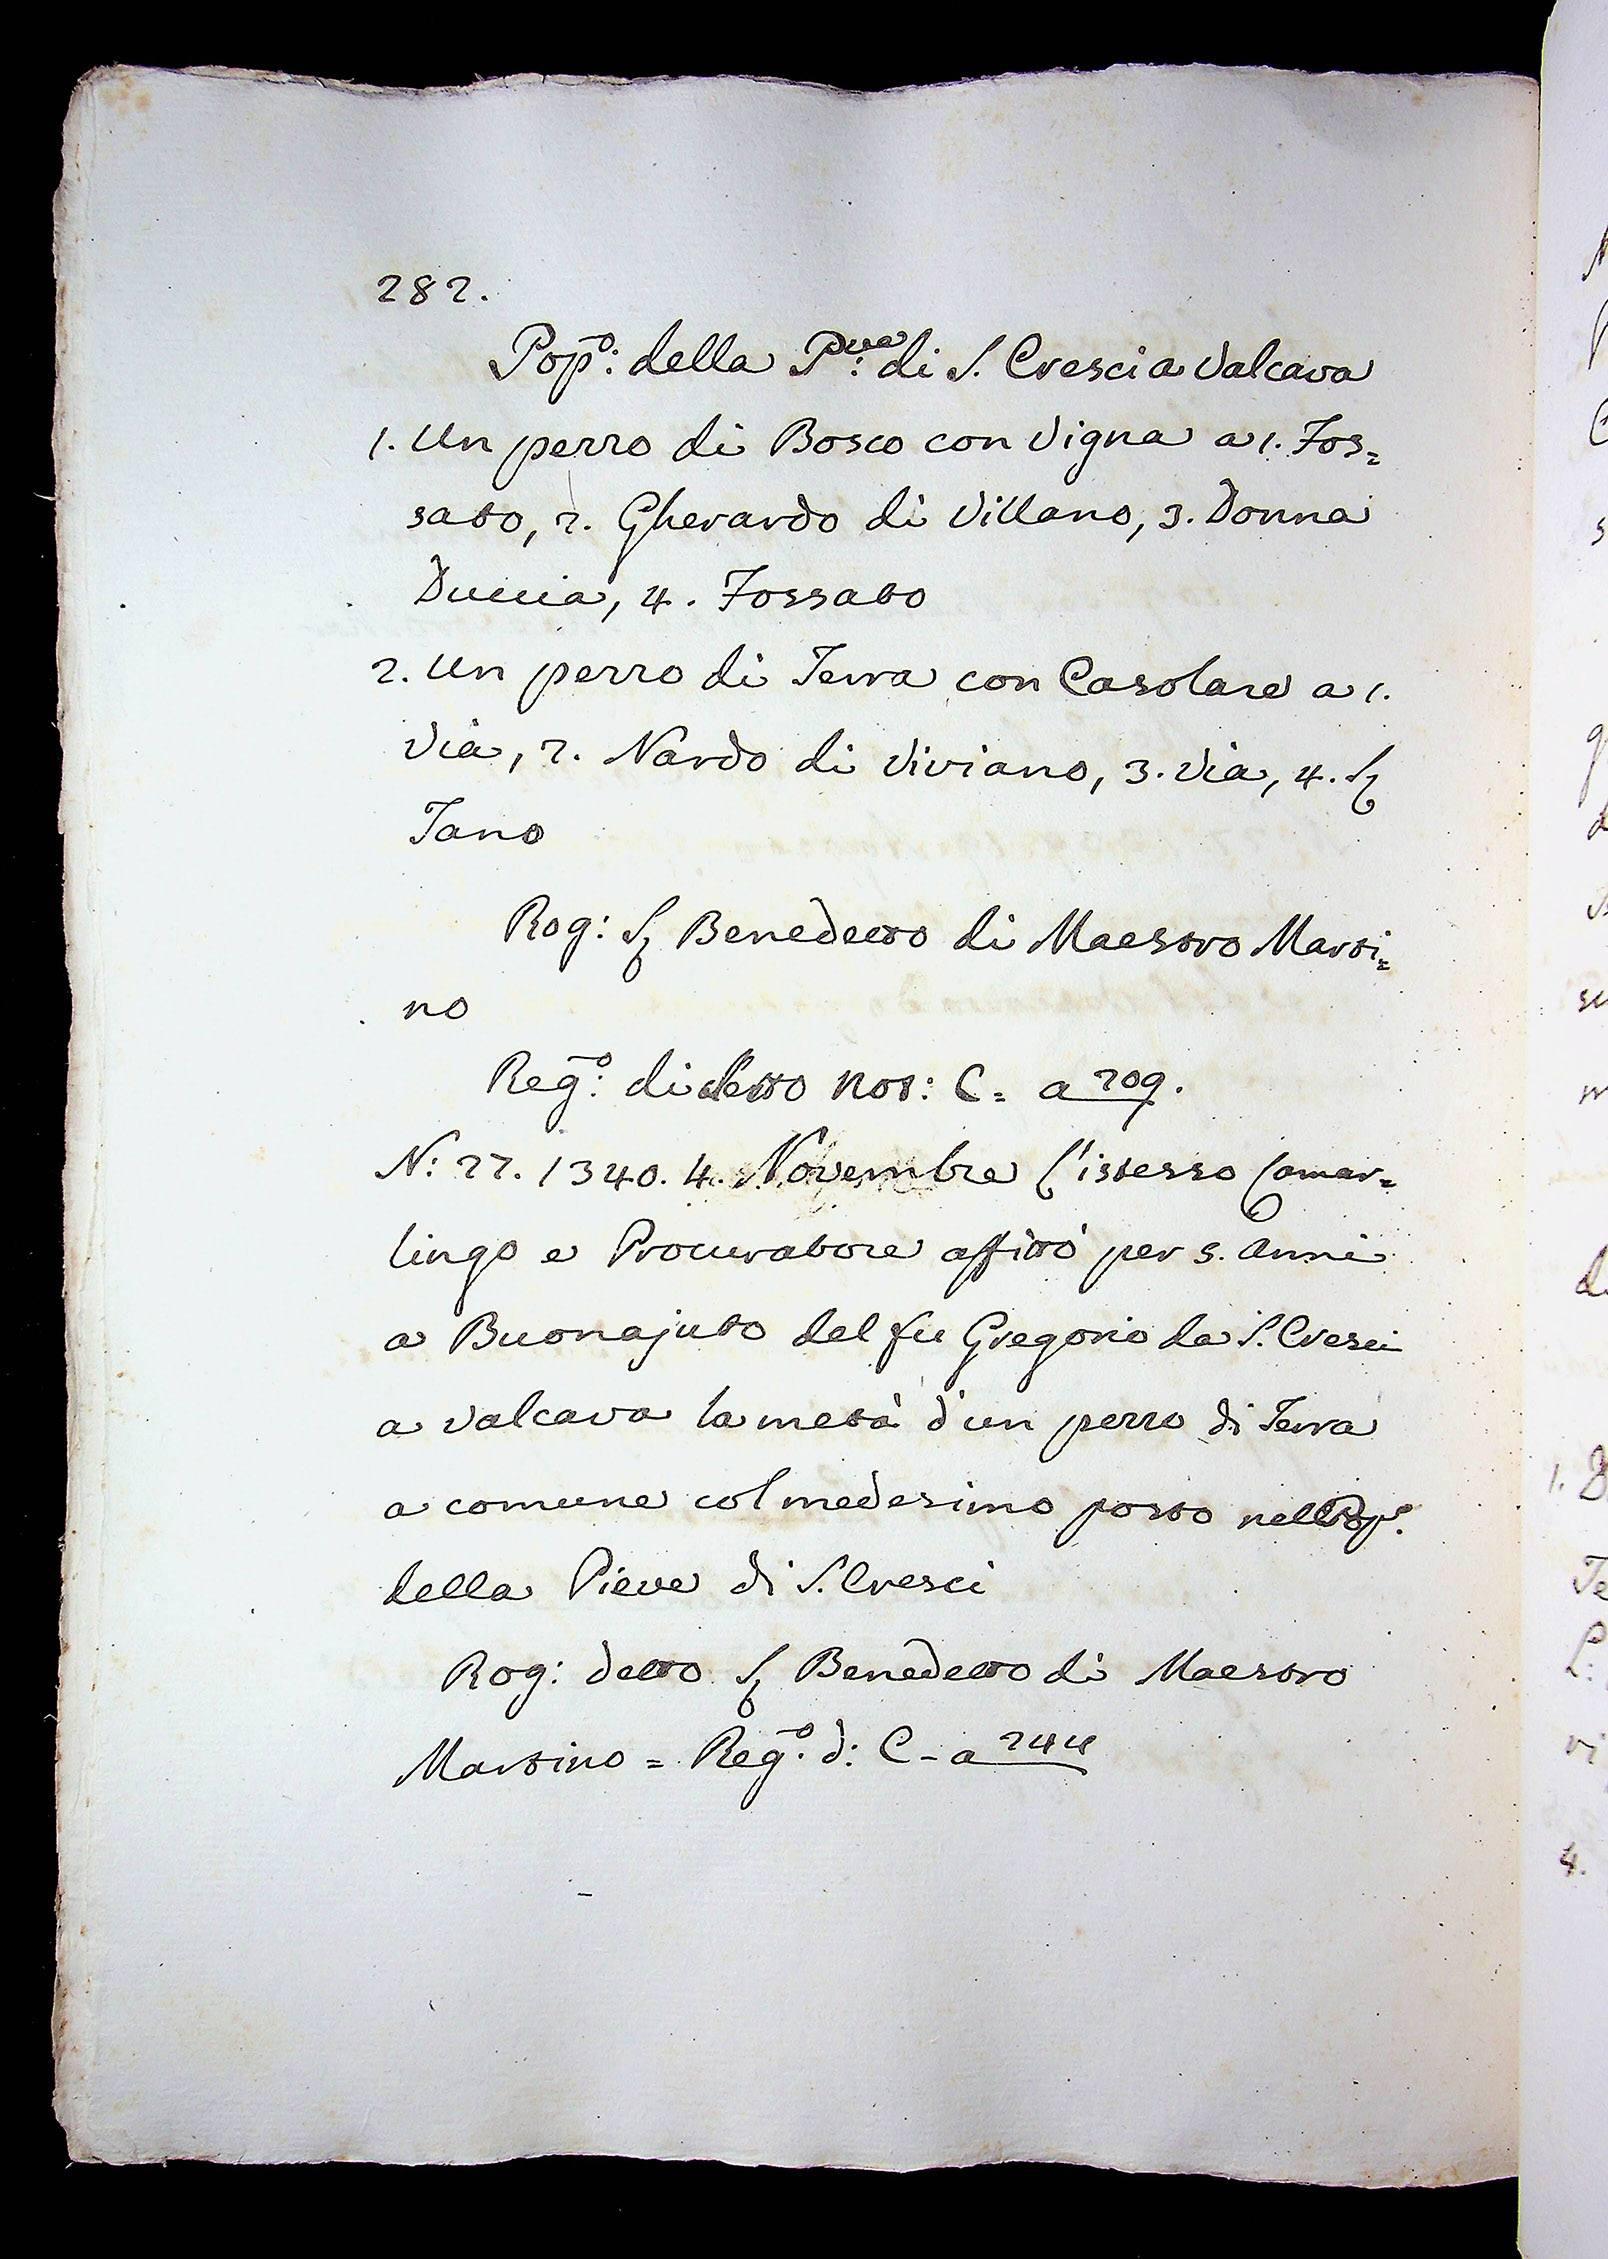 282.
Pop.º: della P.ve: di S. Cresci a Valcava
1. Un pezzo di Bosco con Vigna a 1. Fos=
sato, 2. Gherardo di Villano, 3. Donna
Duccia, 4. Fossato
2. Un pezzo di Terra con Casolare a 1.
Via, 2. Nardo di Viviano, 3. Via, 4. S
Tano
Rog: S Benedetto di Maestro Marti=
no
Reg.º: di detto Not: C. a 209.
N: 22. 1340. 4. Novembre l'istesso Camar=
lingo e Procuratore affittò per 5. Anni
a Buonajuto del fu Gregorio da S. Cresci
a Valcava la metà d'un pezzo di Terra
a comune col medesimo posto nell Pop.º
della Pieve di S. Cresci
Rog: detto S Benedetto di Maestro
Martino = Reg.º d: C - a 244